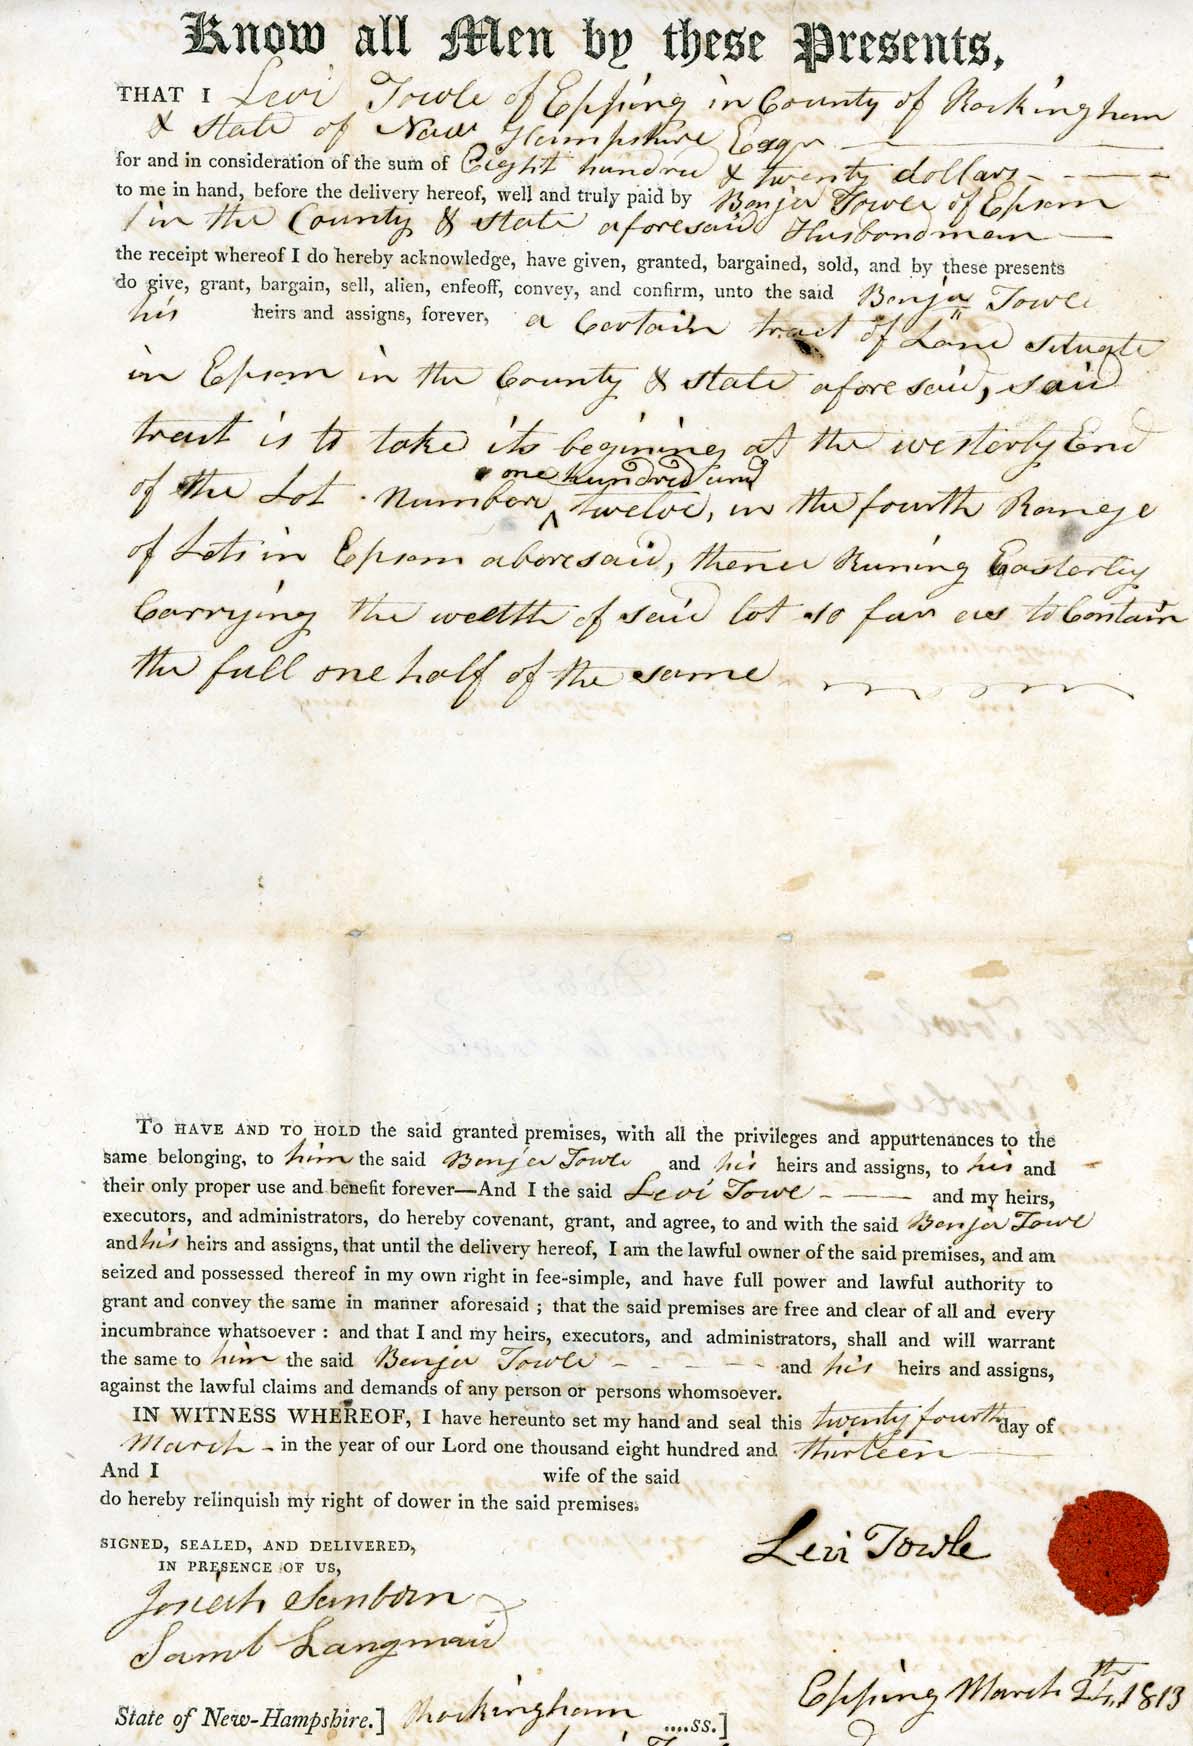 Know all Men by these Presents,
THAT I Levi Towle of Epping in County of Rockingham
& State of New Hampshire Esqr
for and in consideration of the sum of Eight hundred & twenty dollars
to me in hand, before the delivery hereof, well and truly paid by Benja Towle of Epsom
in the County & State aforesaid Husbandman
the receipt whereof I do hereby acknowledge, have given, granted, bargained, sold, and by these presents
do give, grant, bargain, sell, alien, enfeoff, convey, and confirm, unto the said Benja Towle
his heirs and assigns, forever, a Certain tract of Land situate
in Epsom in the County & State aforesaid, said
tract is to take its begining at the westerly End
of the Lot Number one hundred and twelve, in the fourth Range
of Lots in Epsom aboresaid, thence Runing Easterly
Carrying the wedth of said lot so far as to Contain
the full one half of the same
To HAVE AND TO HOLD the said granted premises, with all the privileges and appurtenances to the
same belonging, to him the said Benja Towle and his heirs and assigns, to his and
their only proper use and benefit forever—And I the said Levi Towle and my heirs,
executors, and administrators, do hereby covenant, grant, and agree, to and with the said Benja Towle
and his heirs and assigns, that until the delivery hereof, I am the lawful owner of the said premises, and am
seized and possessed thereof in my own right in fee-simple, and have full power and lawful authority to
grant and convey the same in manner aforesaid ; that the said premises are free and clear of all and every
incumbrance whatsoever : and that I and my heirs, executors, and administrators, shall and will warrant
the same to him the said Benja Towle and his heirs and assigns,
against the lawful claims and demands of any person or persons whomsoever.
IN WITNESS WHEREOF, I have hereunto set my hand and seal this twenty fourth day of
March - in the year of our Lord one thousand eight hundred and thirteen
And I wife of the said
do hereby relinquish my right of dower in the said premises.
SIGNED, SEALED, AND DELIVERED,
IN PRESENCE OF US,
Levi Towle
Josiah Sanborn
Saml Langmaid
Epping March 24th, 1813
State of New-Hampshire.] Rockingham ....ss.]